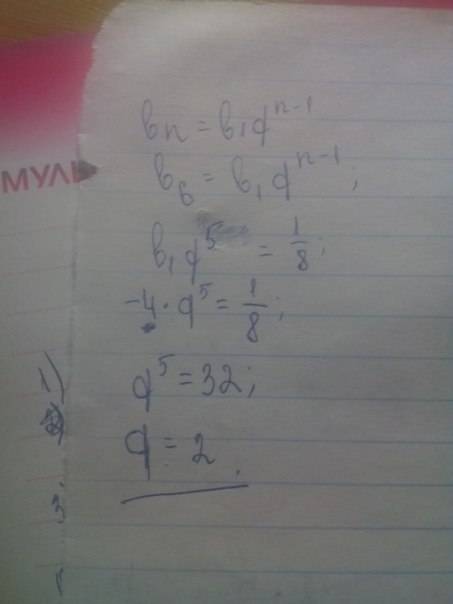 bn = b₁q^{n-1}
МУЛ
b₆ = b₁q^{n-1};
b₁q⁵ = 1/8;
-4·q⁵ = 1/8;
1)
q⁵ = 32;
q = 2.
3.